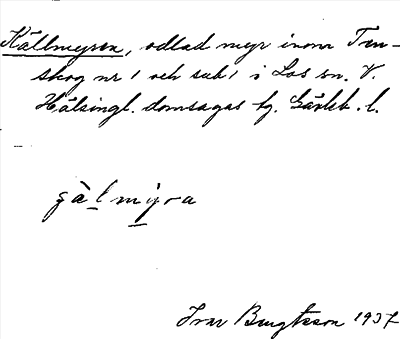 Källmyren, odlad myr inom Ten-
skog nr 1 och sub 1 i Los sn. V.
Hälsingl. domsagas tg. Gävleb. l.
gàlmyra
Ivar Bengtsson 1937